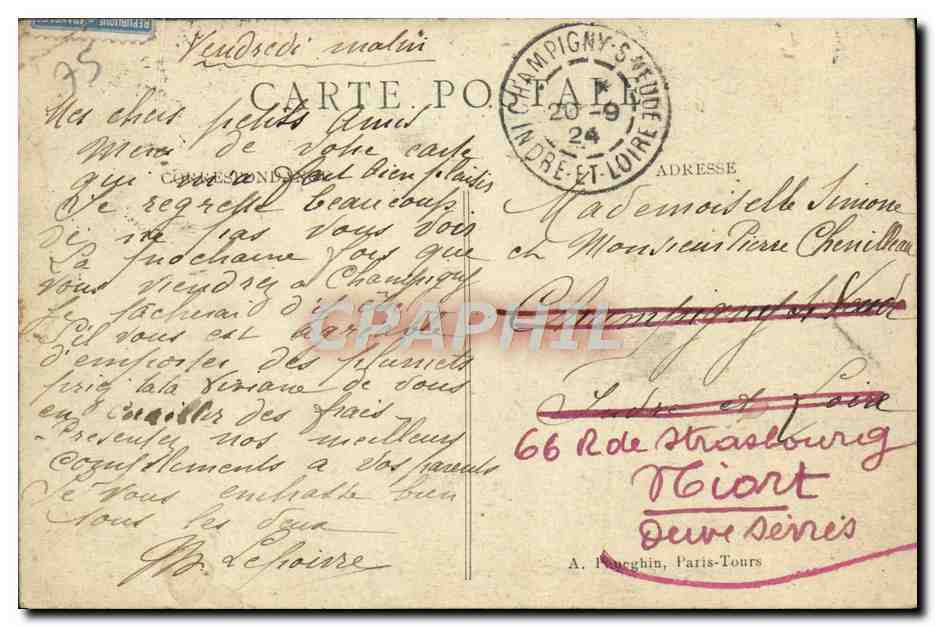 REPUBLIQUE FRANCAISE
75
Vendredi matin
CARTE POSTALE
CHAMPIGNY-S-VEUDE
20-9
24
INDRE-ET-LOIRE
CORRESPONDANCE
Mes chers petits Amis
Merci de votre carte
qui m'a fait bien plaisir
Je regrette beaucoup
de ne pas vous voir
La prochaine fois que
vous viendrez a Champigny
Je tacherai d'y être
S'il vous est agréable
d'emporter des plumets
priez Viviane de vous
en cueillir des frais
Présentez nos meilleurs
compliments a vos parents
Je vous embrasse bien
tous les deux
M Lepoivre
ADRESSE
Mademoiselle Simone
et Monsieur Pierre Chenilleau
Champigny s/ Veude
Indre et Loire
66 R de Strasbourg
Niort
Deux Sèvres
A. Papeghin, Paris-Tours
CPAPHIL
.COM